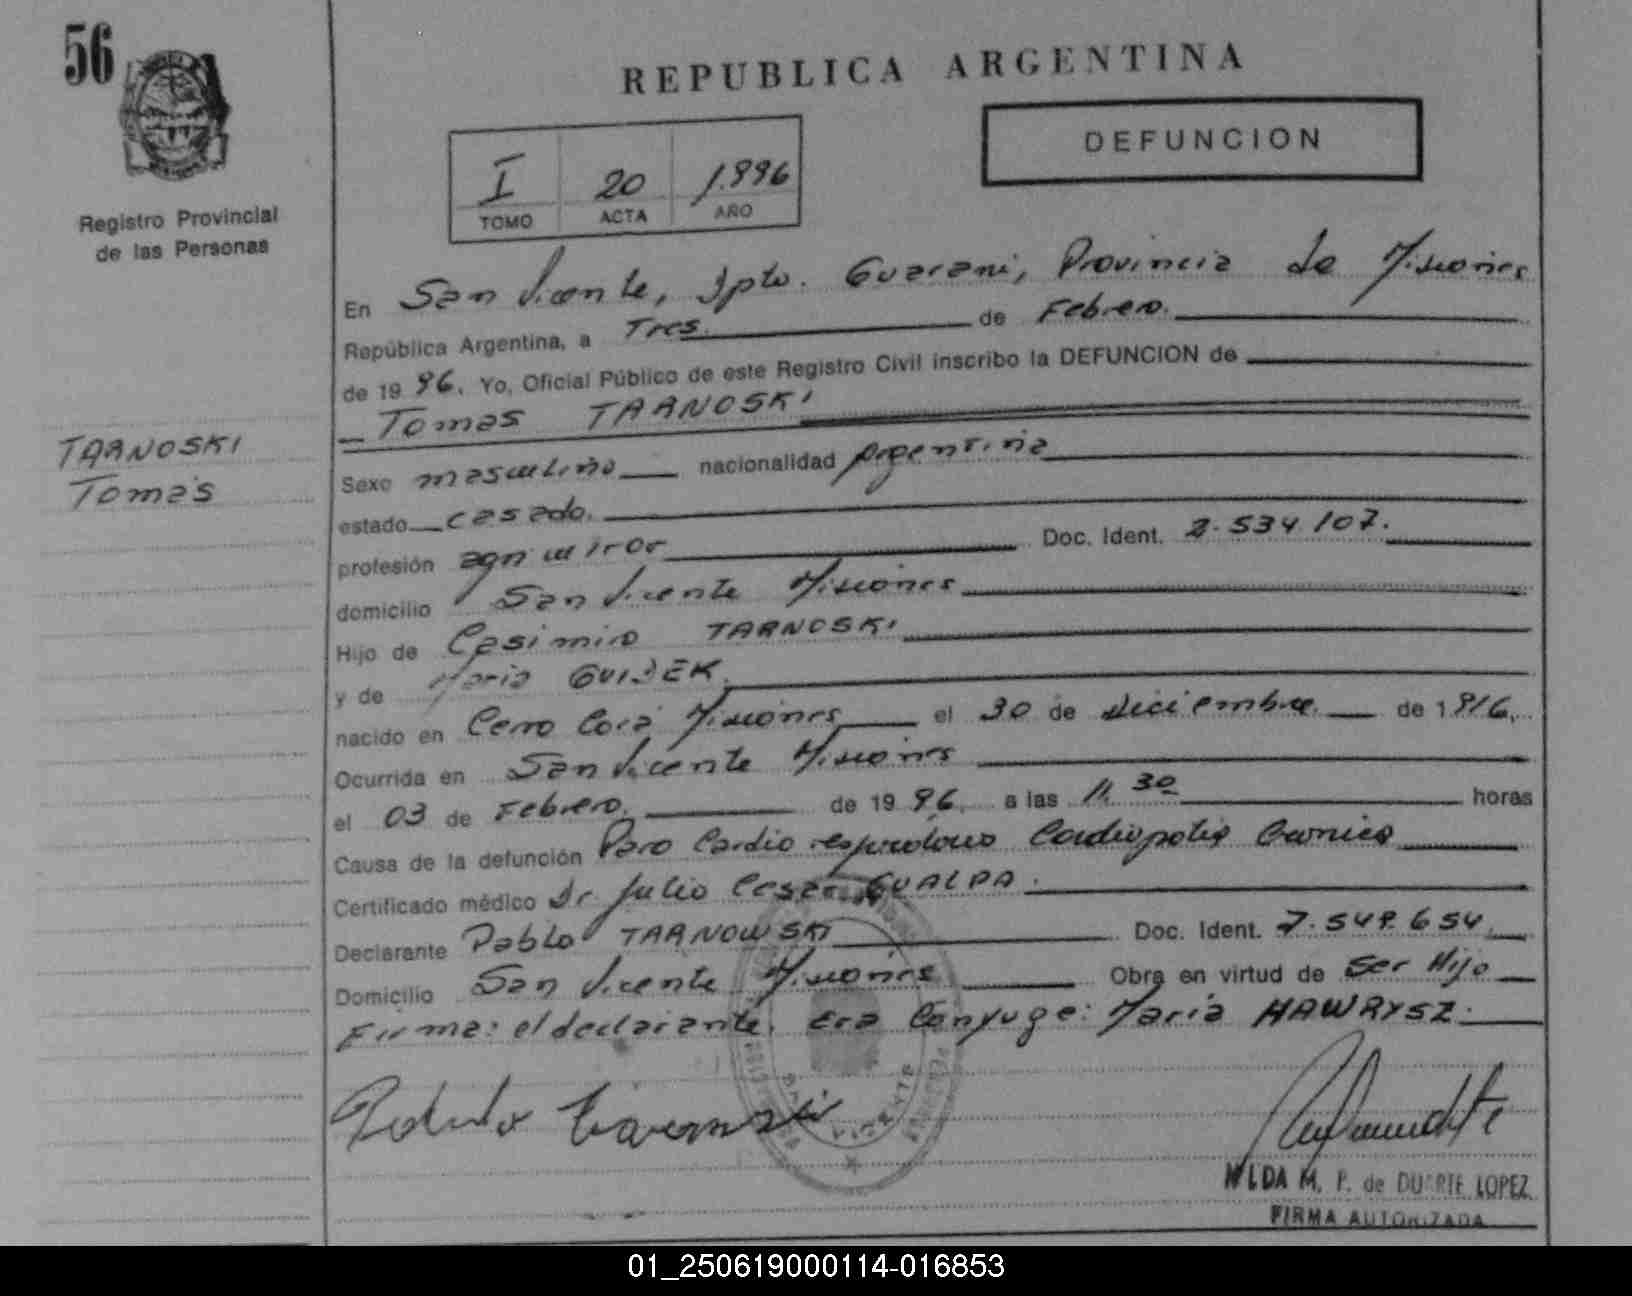 56
REPUBLICA ARGENTINA
DEFUNCION
I 20 1.996
TOMO ACTA AÑO
Registro Provincial
de las Personas
En San Vicente, Dpto. Guarani, Provincia de Misiones
República Argentina, a Tres. de Febrero.
de 19 96. Yo, Oficial Público de este Registro Civil inscribo la DEFUNCION de
Tomas TARNOSKI
TARNOSKI
Tomas
Sexo masculino nacionalidad Argentina
estado casado.
profesión agricultor Doc. Ident. 2.534.107.
domicilio San Vicente Misiones
Hijo de Casimiro TARNOSKI
y de Maria GUIDEK.
nacido en Cerro Corá Misiones el 30 de diciembre de 1916.
Ocurrida en San Vicente Misiones
el 03 de Febrero. de 19 96. a las 11,30 horas
Causa de la defunción Paro Cardio respiratorio Cardiopatia Cronica
Certificado médico Dr Julio Cesar GUALPA.
Declarante Pablo TARNOWSKI Doc. Ident. 7.549.654.
Domicilio San Vicente Misiones Obra en virtud de ser Hijo
Firma: el declarante. Era Conyuge: Maria HAWRYSZ.
VICENTE
NILDA M. P. de DUARTE LOPEZ
FIRMA AUTORIZADA
01_250619000114-016853